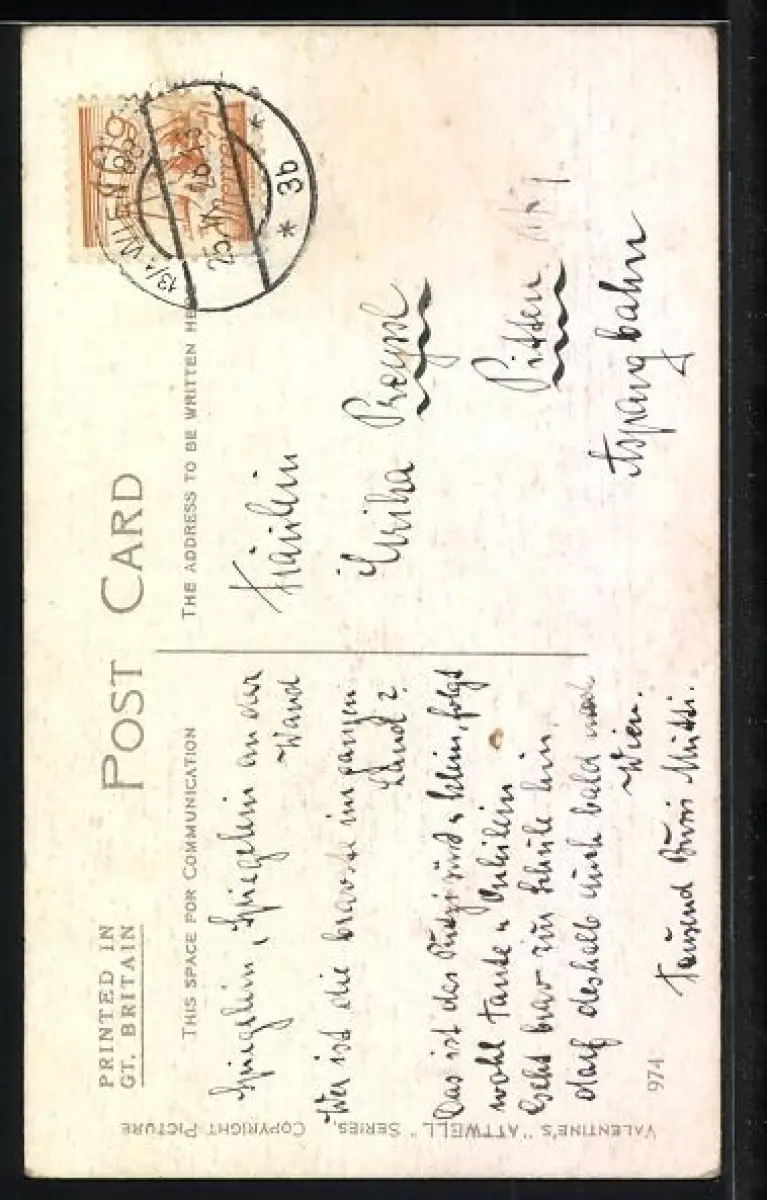 PRINTED IN
GT. BRITAIN
POST CARD
THIS SPACE FOR COMMUNICATION
THE ADDRESS TO BE WRITTEN HE
VALENTINE'S "ATTWELL" SERIES. COPYRIGHT PICTURE
Spieglein, Spieglein an der
Wand
Wer ist die bravste im ganzen
Land?
Das ist das Putzi süß u klein, folgt
wohl Tante u
Geht brav zur Schule hin
darf deshalb auch bald nach
Wien.
Tausend Bussi Mutti.
974
Fräulein
Erika
Pitten
Aspangbahn
WIEN
25
* 3b *